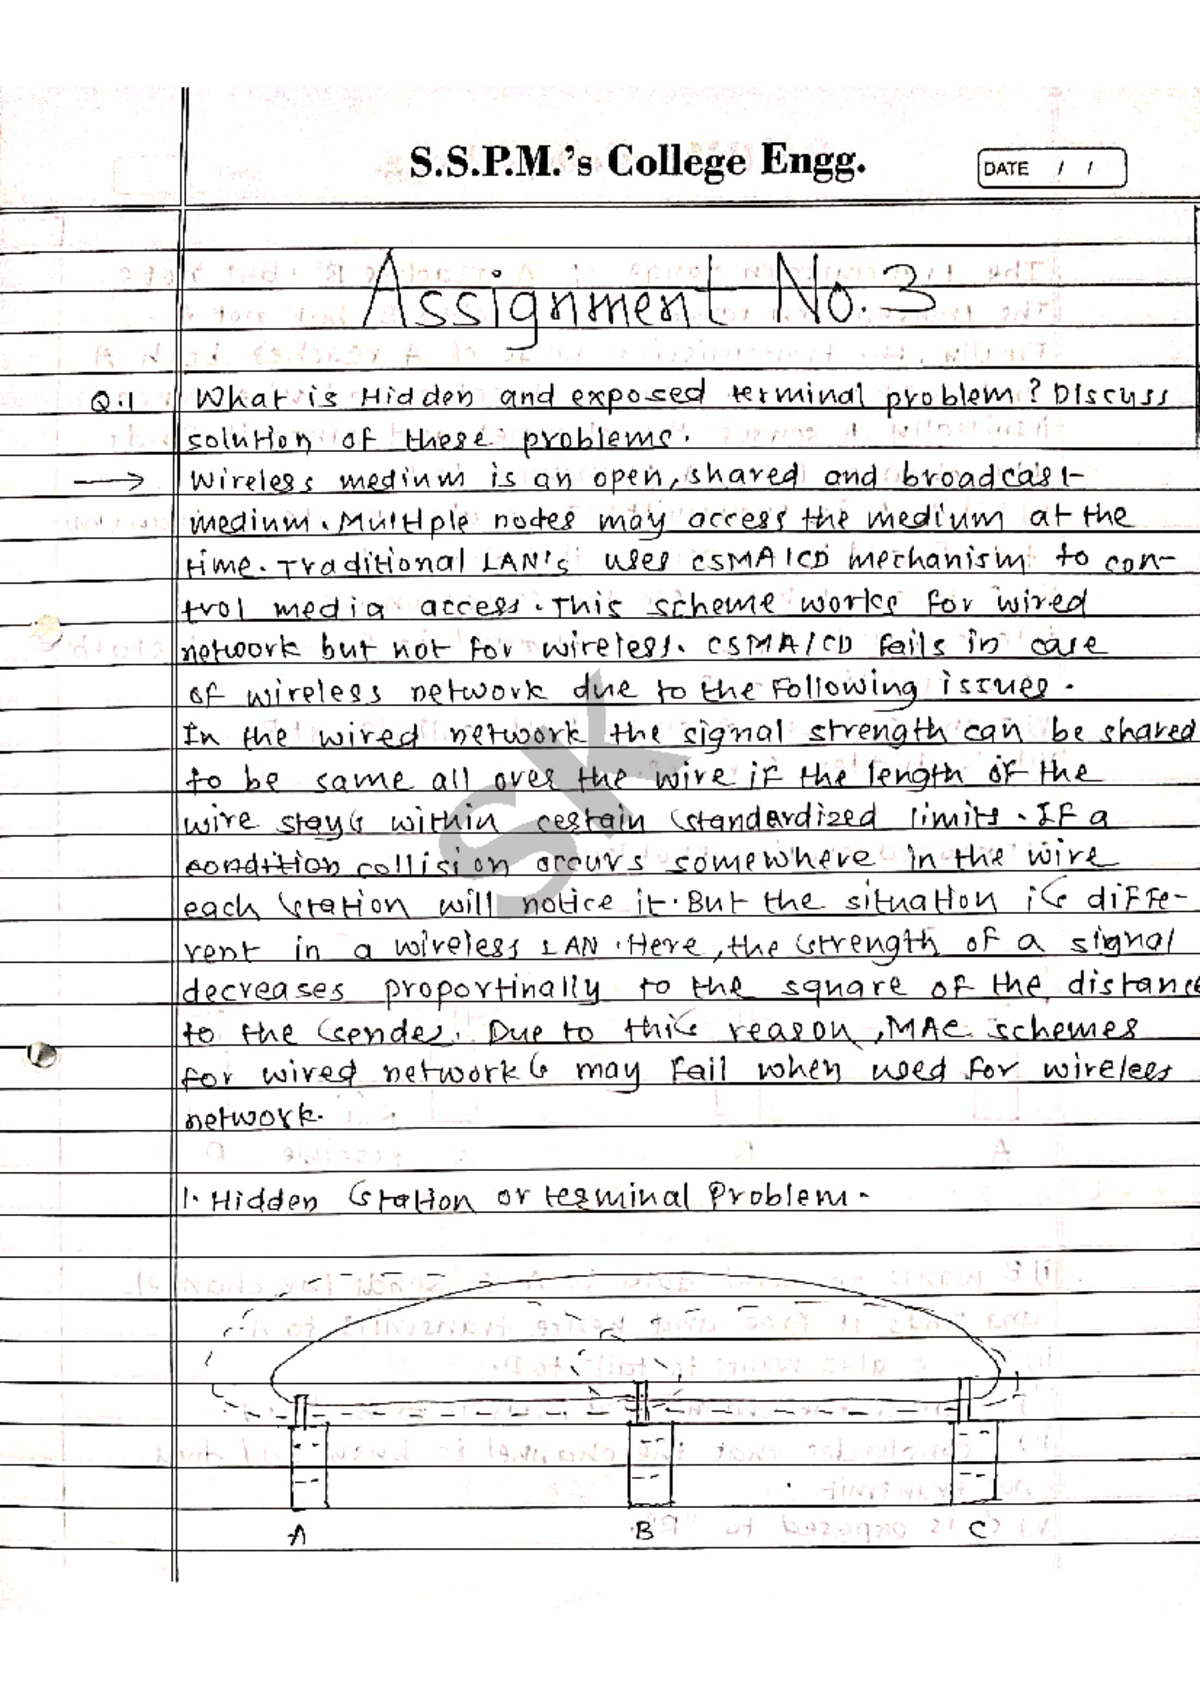 S.S.P.M.'s College Engg.
DATE / /
Assignment No. 3
Q.1 What is Hidden and exposed terminal problem? Discuss
solution of these problems.
→ Wireless medium is an open, shared and broadcast
medium. Multiple nodes may access the medium at the
time. Traditional LAN's uses CSMA/CD mechanism to con-
trol media access. This scheme works for wired
network but not for wireless. CSMA/CD fails in case
of wireless network due to the following issues.
In the wired network the signal strength can be shared
to be same all over the wire if the length of the
wire stays within certain standardized limits. If a
condition collision occurs somewhere in the wire
each station will notice it. But the situation is diffe-
rent in a wireless LAN. Here, the strength of a signal
decreases proportinally to the square of the distance
to the sender. Due to this reason, MAC schemes
for wired networks may fail when used for wireless
network.
1. Hidden station or terminal Problem.
A B C
SK